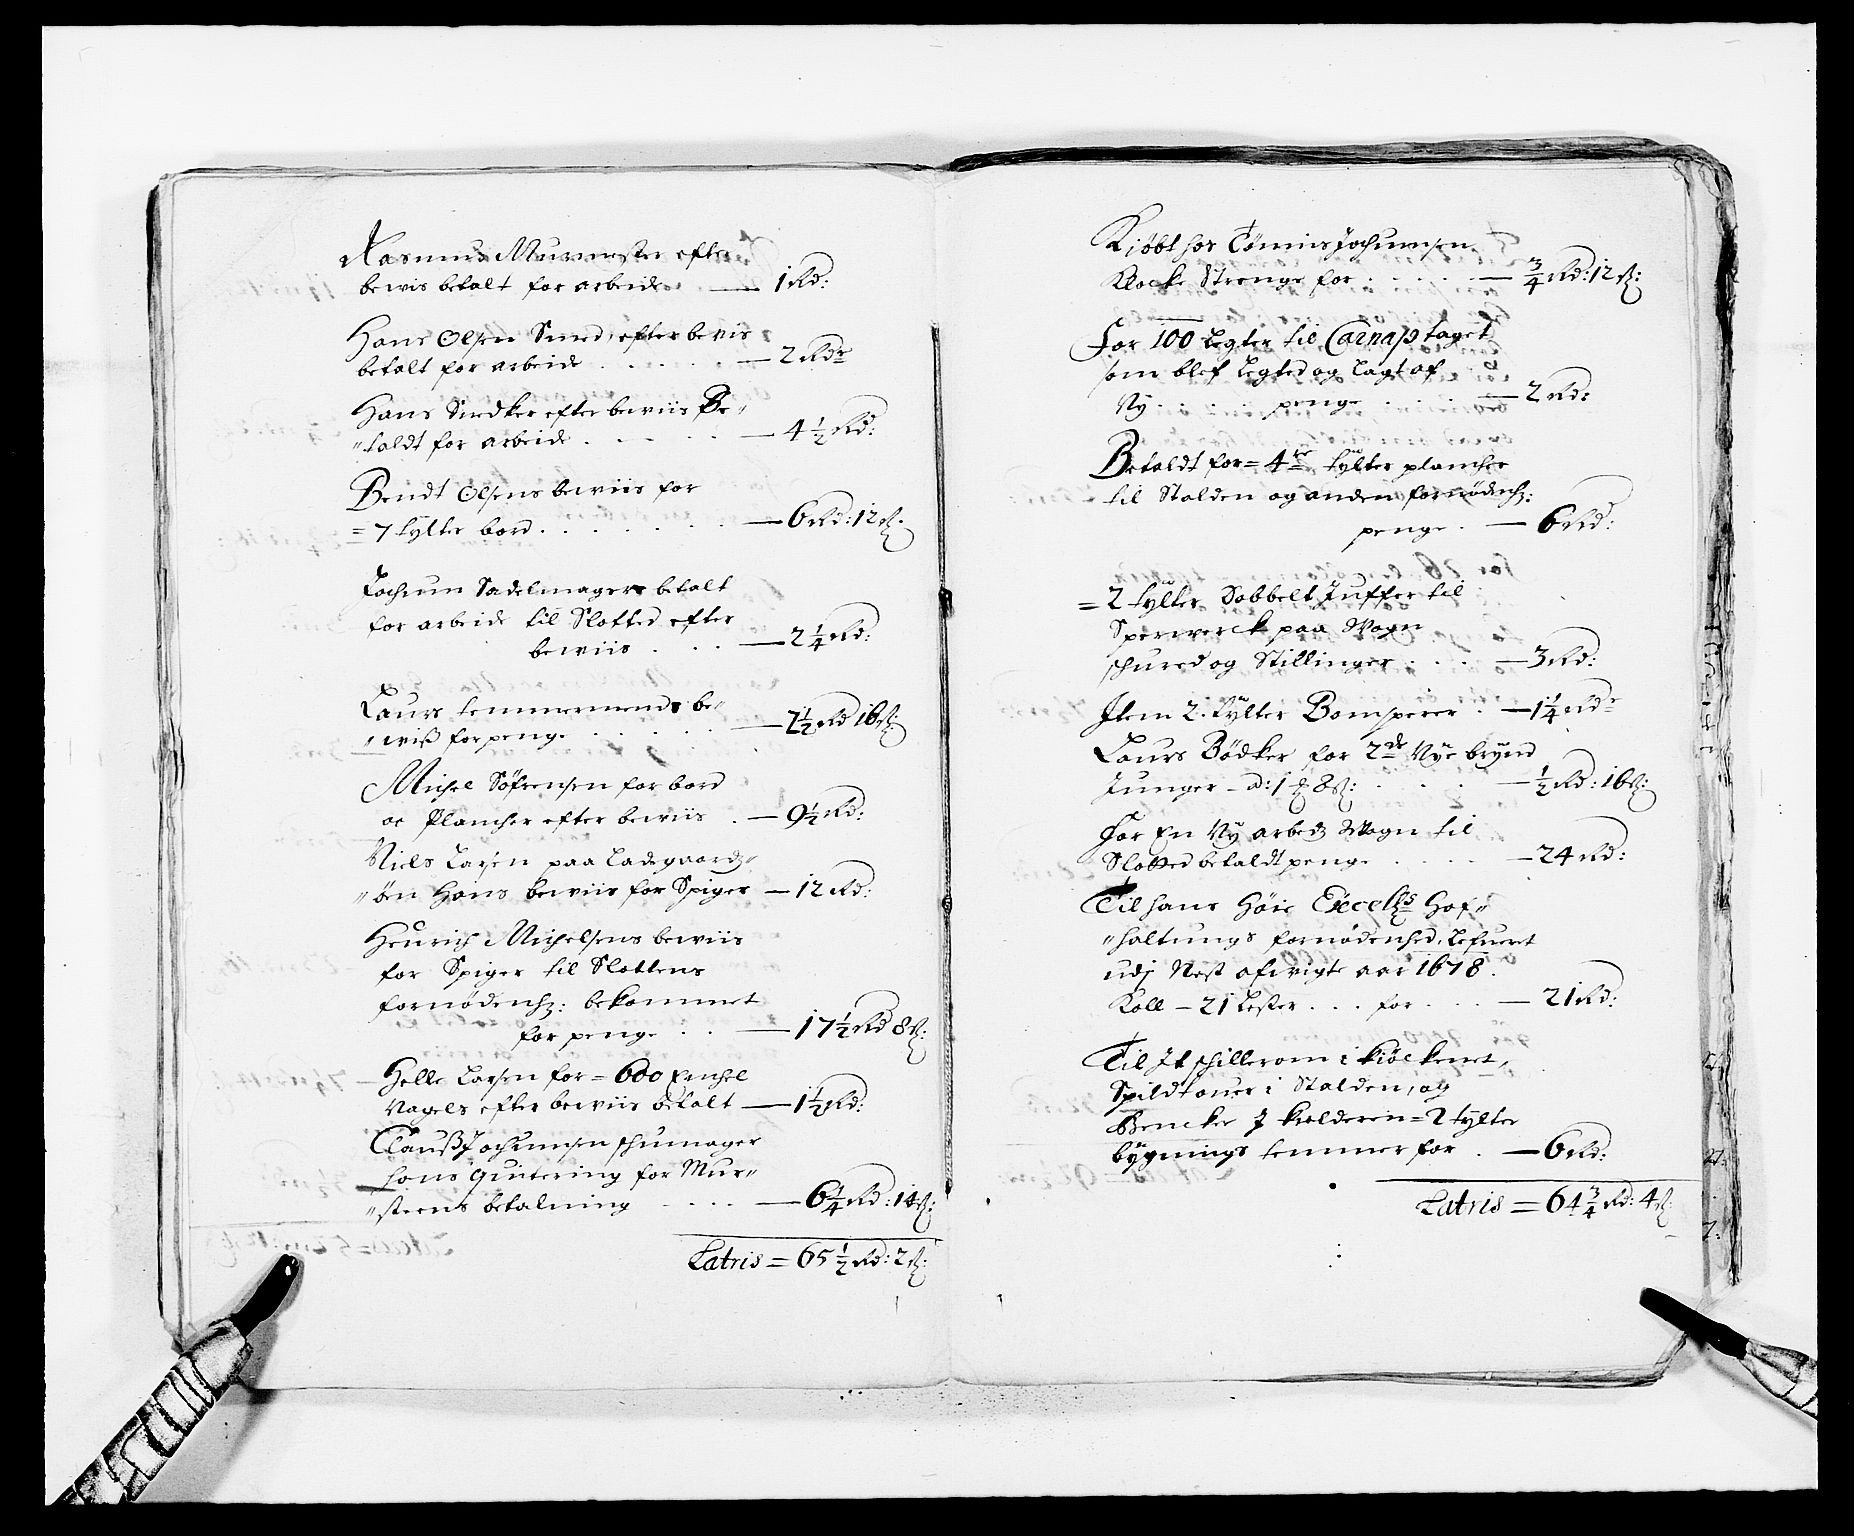 Rasmus Muurmester efter
bewis betalt for arbeide — 1 Rd:
Hans Olsen Smed, efter bevis
betalt for arbeide . . . . — 2 Rdr
Hans Snedker efter beviis Be„
„taldt for arbeide . . . . . — 4½ Rd:
Bendt Olsens beviis for
= 7 tylter bord . . . . . . — 6 Rd: 12 ß:
Jochum Sadelmagers betalt
for arbeide til Slotted efter
beviis . . . — 2¼ Rd:
Laurs temmermends be„
„wiß for penge . . . . . — 7½ Rd 16 ß:
Michel Söfrensen for bord
oc Plancher efter beviis . — 9½ Rd:
Niels Larsen paa Ladegaards„
„öen Hans beviis for Spiger — 12 Rd:
Henrich Michelsens beviis
for Spiger til Slottens
fornödenhz: bekommet
for penge . . — 17½ Rd 8 ß:
Helle Larsen for = 600 Enchel
Nagels efter beviis betalt — 1½ Rd:
Clauß Jochumsen schumager
hans Quitering for Mur„
„steens betalning . . . . — 6¼ Rd: 14 ß:
Latris = 65½ Rd: 2 ß:
Kjöbt hos Tönnis Jochumsen
Klocke Strenge for . . . . — ¾ Rd: 12 ß:
For 100 Legter til Carnap taget
som blef Legted og Lagt af
Ny . . . . penge . . . . — 2 Rd:
Betaldt for = 4re tylter plancher
til Stalden og anden fornödenhz:
penge . — 6 Rd:
= 2 tylter Dobbelt Juffer til
Sperwerck paa Wogn
schured og Stillinger . . . — 3 Rd:
Item 2 . Tylter Bomsperer . — 1¼ Rdr
Laurs Bödker for 2de Nye brynd
Junger – a: 1 8 ß: . . . . — ½ Rd: 16 ß:
For En Ny arbedz Wogn til
Slotted betaldt penge . . . . — 24 Rd:
Til hans Höie Excellz Hof„
„holtungs fornödenhed, Lefueret
udj Nest afvigte aar 1678.
Koll – 21 Lester . . . for . . . — 21 Rd:
Til It schillerom i kiöckenet,
Spildtouer i Stalden, og
Bencker J kielderen = 2 tylter
bygnings temmer for . — 6 Rd:
Latris = 64¾ Rd: 4 ß: